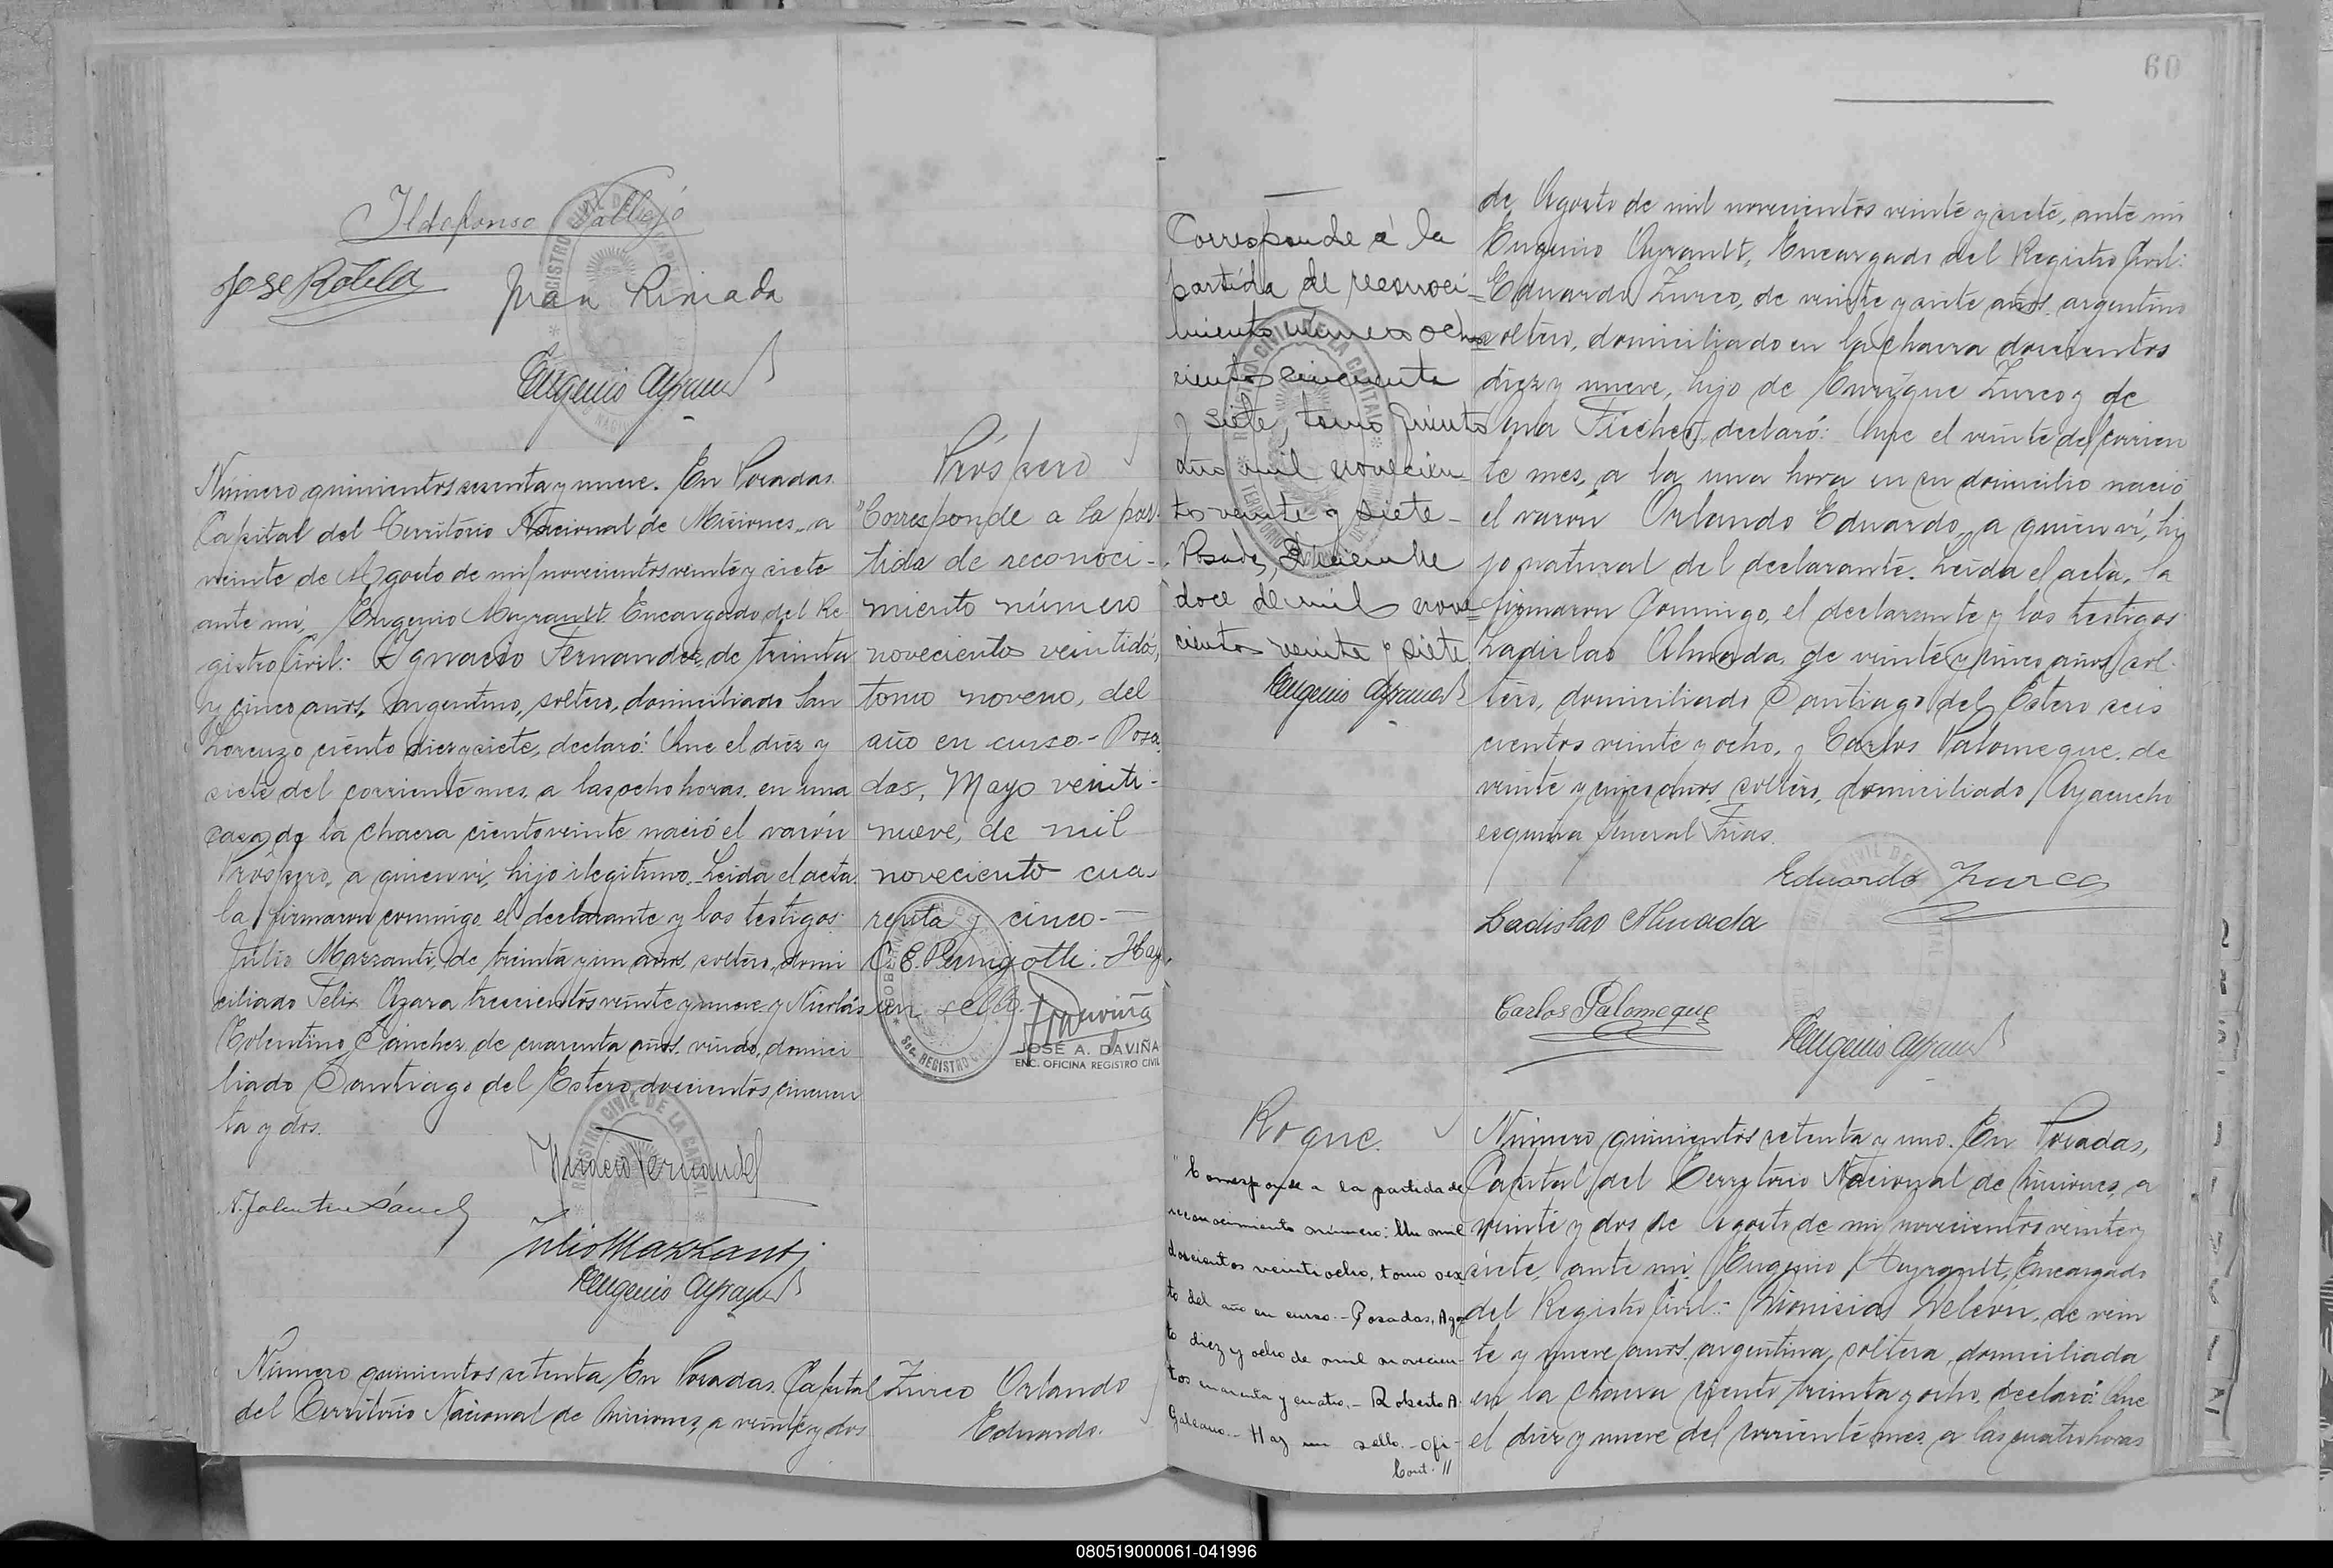 Ildefonso Vallejo
José Rotela
Juan Riniada
Eugenio Ayrault
Número quinientos sesenta y nueve. En Posadas
Capital del Territorio Nacional de Misiones, a
veinte de Agosto de mil novecientos veinte y siete
ante mí, Eugenio Ayrault Encargado del Re
gistro Civil: Ygnacio Fernandez, de treinta
y cinco años, argentino, soltero, domiciliado San
Lorenzo ciento diez y siete, declaró: Que el diez y
siete del corriente mes, a las ocho horas, en una
casa de la chacra ciento veinte nació el varón
Próspero, a quien vi, hijo ilegítimo. Leida el acta
la firmaron conmigo el declarante y los testigos:
Julio Mazzanti, de treinta y un años, soltero, domi
ciliado Felix Azara trescientos veinte y nueve y Nicolás
Tolentino Sánchez de cuarenta años, viudo, domici
liado Santiago del Estero doscientos cincuen
ta y dos.
Ignacio Fernandez
N. Tolentino Sánchez
Julio Mazzanti
Eugenio Ayrault
Número quinientos setenta En Posadas, Capital
del Territorio Nacional de Misiones, a veinte y dos
Próspero
"Corresponde a la par-
tida de reconoci-
miento número
novecientos veintidós,
tomo noveno, del
año en curso.- Posa
das, Mayo veinti-
nueve, de mil
noveciento cua-
renta y cinco.-
C. E. Perrigotti: Hay
un sello.
JOSÉ A. DAVIÑA
ENC. OFICINA REGISTRO CIVIL
Zurco Orlando
Eduardo.
60
Corresponde á la
partida de reconoci-
miento número ocho
cientos cincuenta
y siete, tomo quinto
año mil novecien-
tos veinte y siete-
Posadas, Diciembre
doce de mil nove-
cientos veinte y siete
Eugenio Ayrault
de Agosto de mil novecientos veinte y siete, ante mi
Eugenio Ayrault, Encargado del Registro Civil:
Eduardo Zurco, de veinte y siete años, argentino
soltero, domiciliado en la chacra doscientos
diez y nueve, hijo de Enrique Zurco y de
Ana Fischer, declaró: Que el veinte del corrien
te mes, a la una hora en su domicilio nació
el varón Orlando Eduardo, a quien vi, hi
jo natural del declarante. Leida el acta, la
firmaron conmigo, el declarante y los testigos
Ladislao Almada, de veinte y cinco años, sol-
tero, domiciliado Santiago del Estero seis
cientos veinte y ocho, y Carlos Palomeque, de
veinte y cinco años, soltero, domiciliado Ayacucho
esquina General Frias.
Eduardo Zurco
Ladislao Almada
Carlos Palomeque
Eugenio Ayrault
Roque.
"Corresponde a la partida de
reconocimiento número: Un mil
doscientos veintiocho, tomo sex
to del año en curso.- Posadas, Agos
to diez y ocho de mil novecien-
tos cuarenta y cuatro.- Roberto A.
Galeano.- Hay un sello.- Ofi-
Cont. //
Número quinientos setenta y uno. En Posadas,
Capital del Territorio Nacional de Misiones, a
veinte y dos de Agosto de mil novecientos veinte y
siete, ante mi, Eugenio Ayrault, Encargado
del Registro Civil:- Dionisia de vein
te y nueve años, argentina, soltera, domiciliada
en la chacra ciento treinta y ocho, declaró: Que
el diez y nueve del corriente mes, a las cuatro horas
080519000061-041996